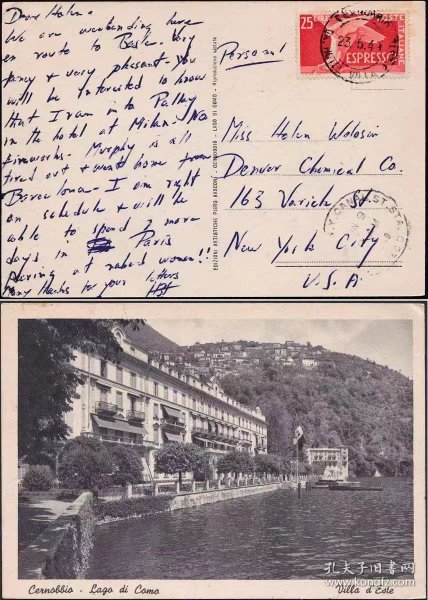 Dear Helen -
We are weekending here
en route to Basle. Very
fancy & very pleasant. You
will be interested to know
that I ran in to Palley
in the hotel at Milan. No
fireworks. Murphy is all
tired out & went home from
Barcelona - I am right
on schedule & will be
able to spend 2 more
days in Paris
peering at naked women!!
Many thanks for your letters
Personal
25 LIRE POSTE ITALIANE
ESPRESSO
23.5.4
Miss Helen Wolosin
Denver Chemical Co.
163 Varick St.
New York City
U.S.A
CANAL ST. STA.
EDIZIONI ARTISTICHE PIETRO CERNOBBIO - LAGO DI COMO - Riproduzione vietata
Cernobbio - Lago di Como
Villa d'Este
孔夫子旧书网